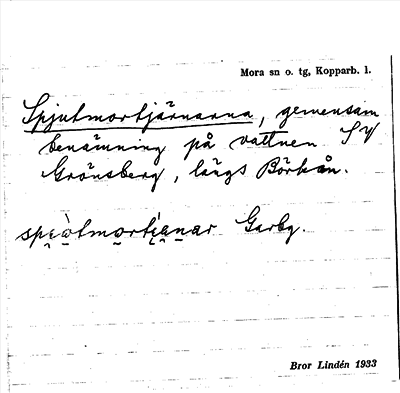 Mora sn o. tg, Kopparb. l.
Spjutmortjärnarna, gemensam
benämning på vattnen SV
Grönsberg, längs Börkån.
Garby.
Bror Lindén 1933